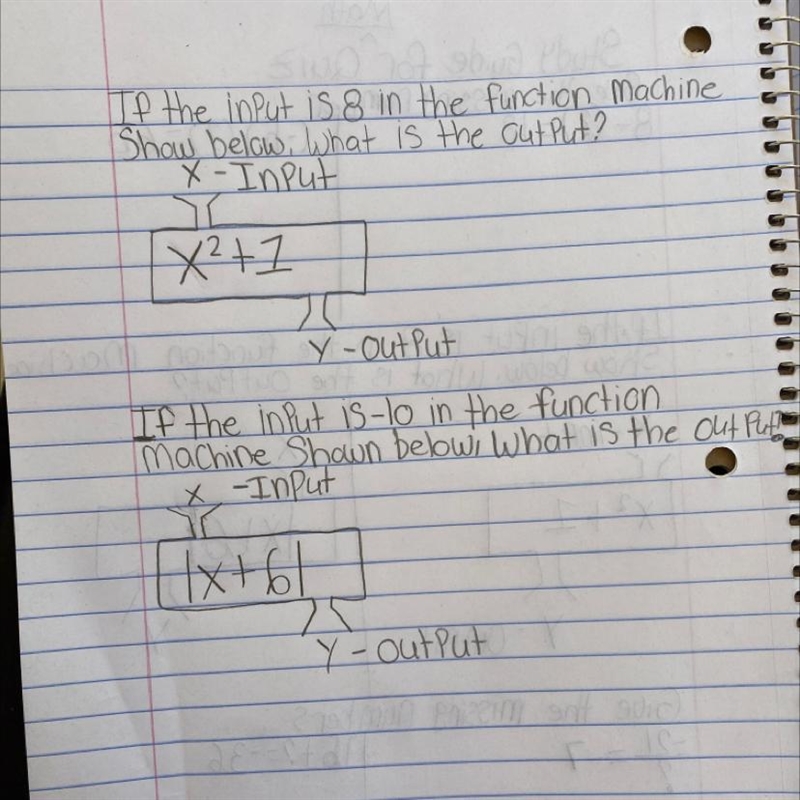 If the input is 8 in the function machine
Show below, What is the output?
X - Input
x²+1
Y - output
If the input is -10 in the function
Machine Shown below, What is the output?
x -Input
|x+6|
Y - output
Study Guide for Quiz
Give the missing numbers